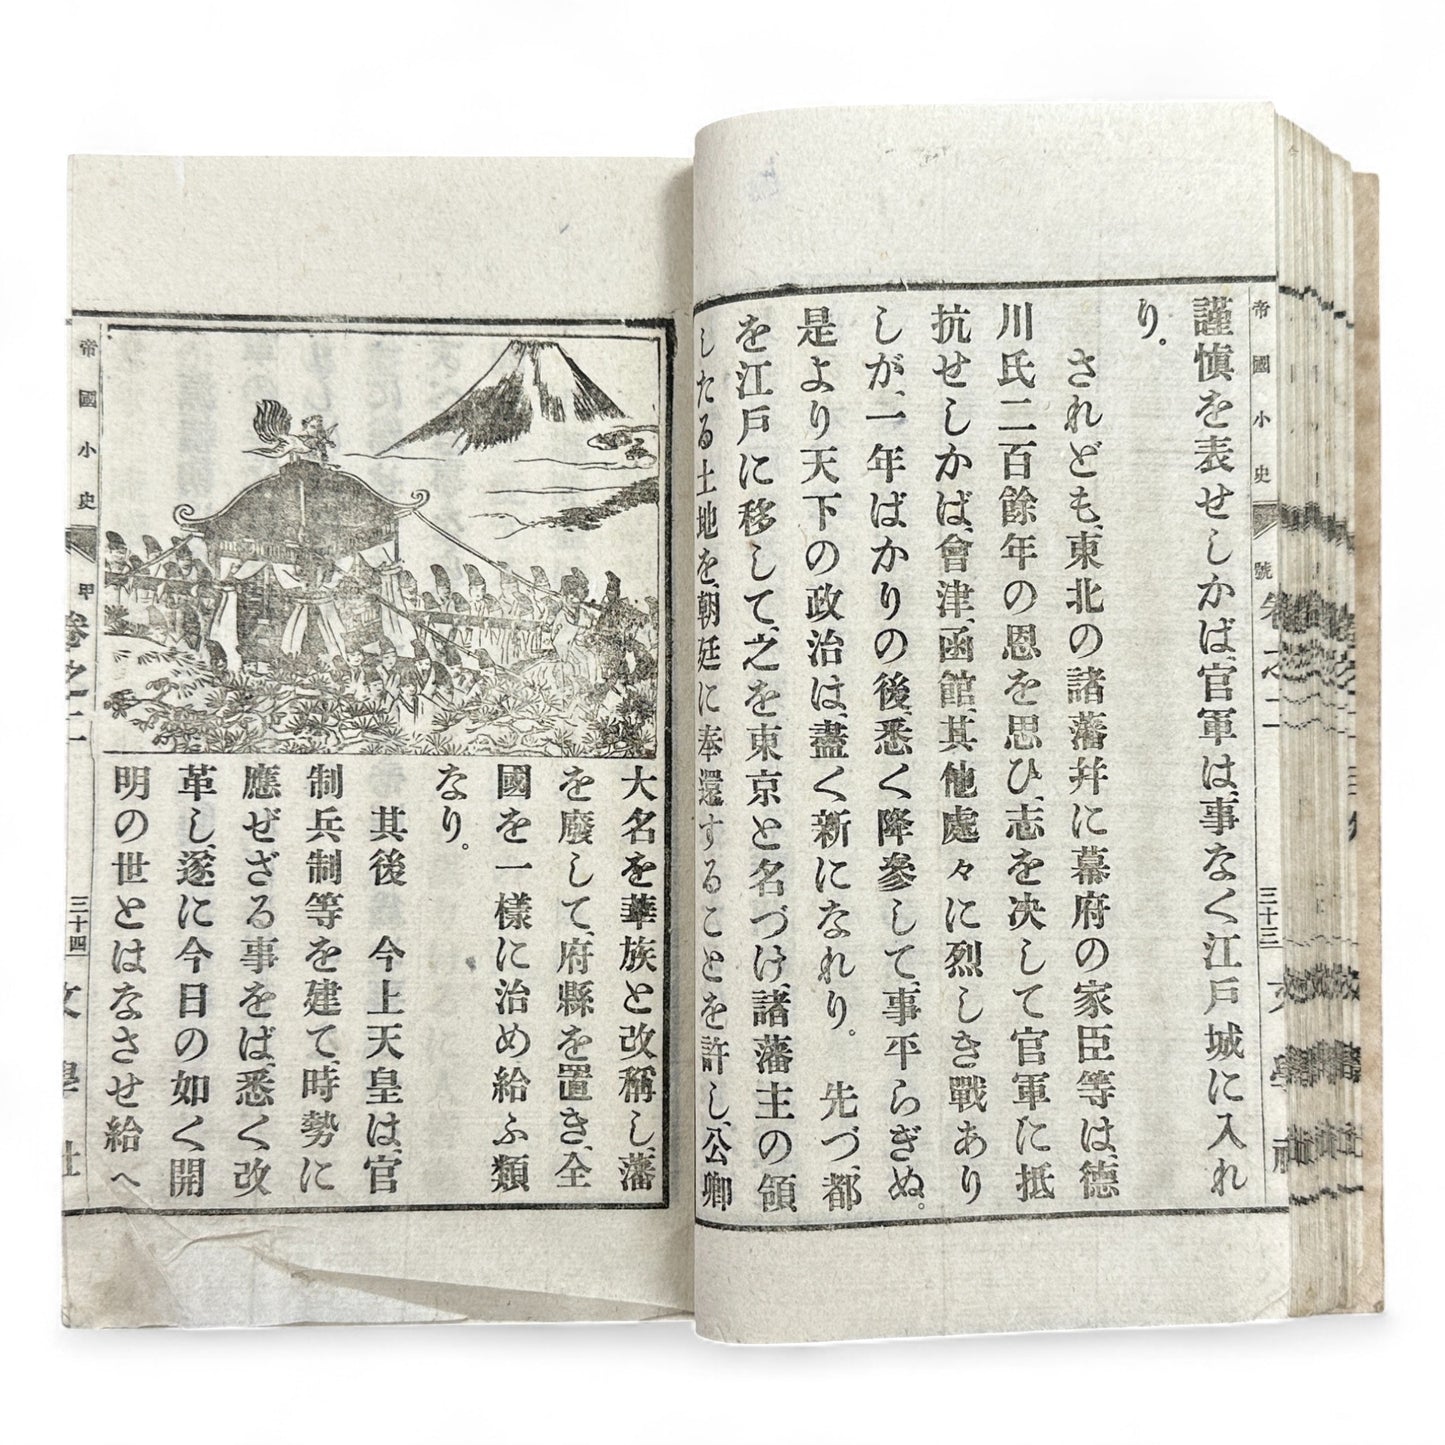 帝國小史 甲號 卷之二 三十三 文學社
謹愼を表せしかば、官軍は、事なく江戸城に入れ
り。
されども、東北の諸藩幷に幕府の家臣等は、德
川氏二百餘年の恩を思ひ、志を決して官軍に抵
抗せしかば、會津、函館、其他處々に烈しき戰あり
しが、一年ばかりの後、悉く降參して、事平らぎぬ。
是より天下の政治は、盡く新になれり。 先づ、都
を江戸に移して、之を東京と名づけ、諸藩主の領
したる土地を、朝廷に奉還することを許し、公卿
大名を華族と改稱し、藩
を廢して、府縣を置き、全
國を一樣に治め給ふ類
なり。
其後 今上天皇は、官
制兵制等を建て、時勢に
應ぜざる事をば、悉く改
革し、遂に今日の如く開
明の世とはなさせ給へ
帝國小史 甲 卷之二 三十四 文學社